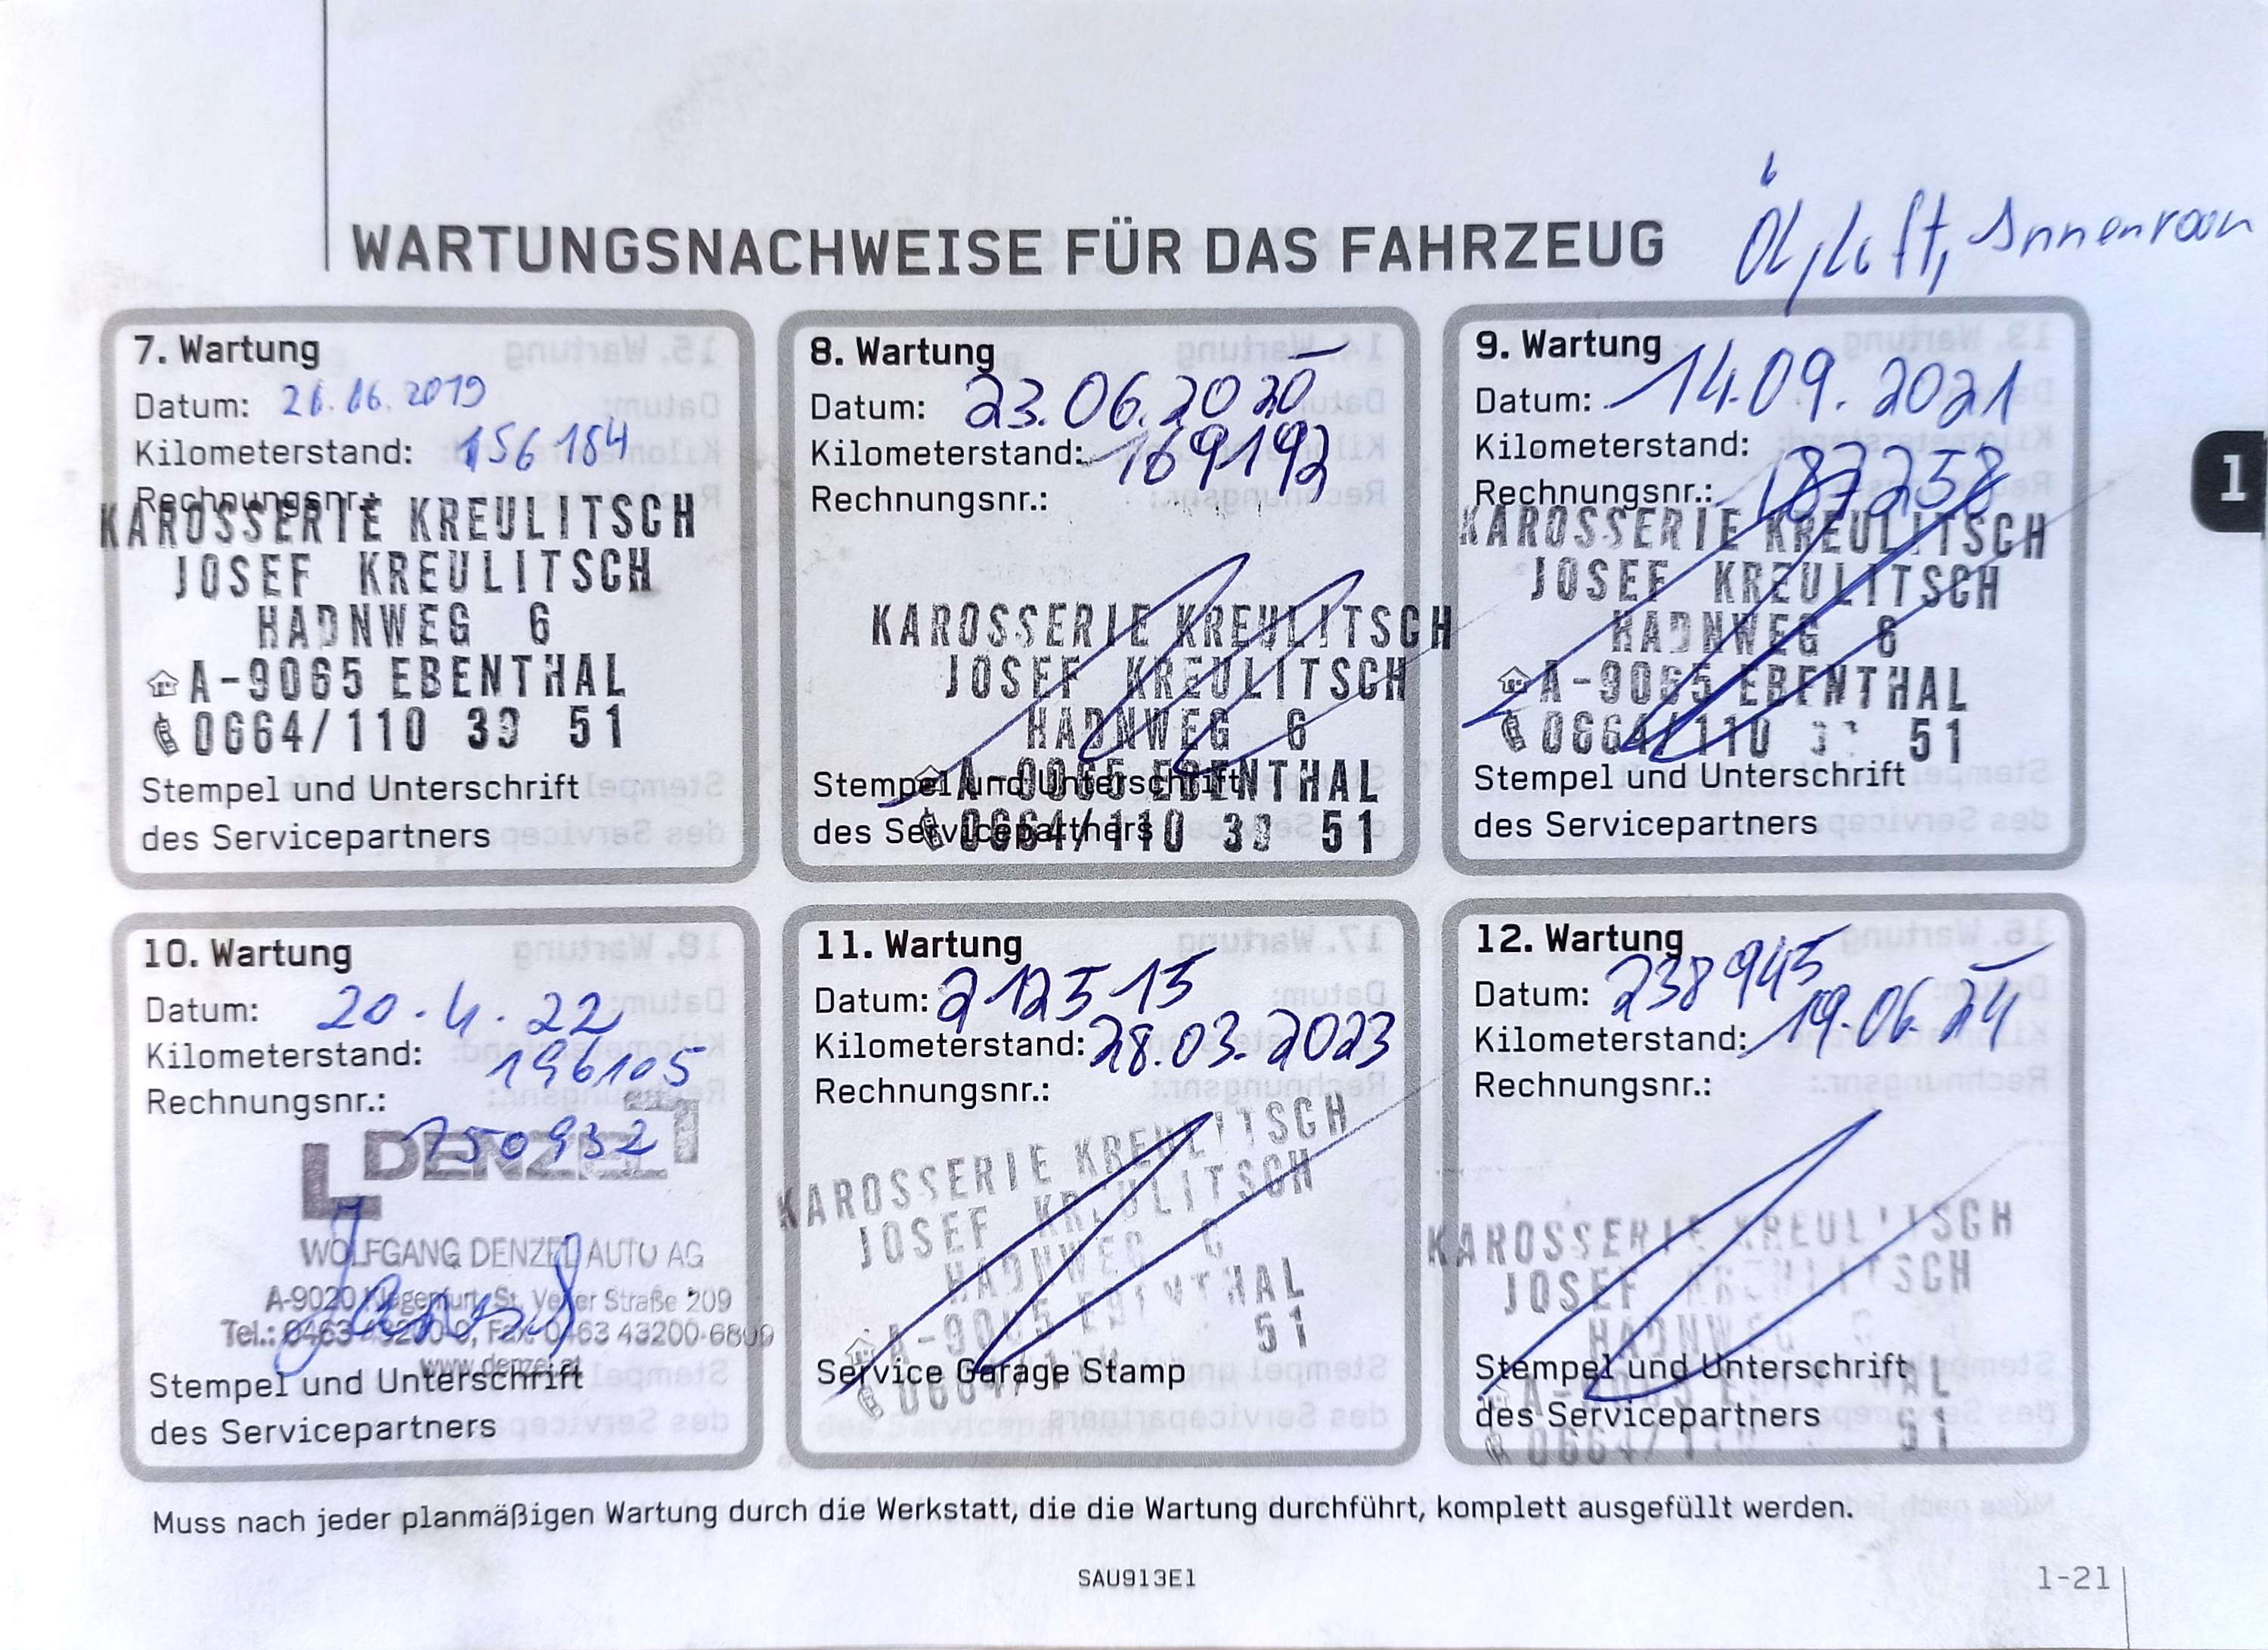 WARTUNGSNACHWEISE FÜR DAS FAHRZEUG
Öl, Luft, Innenraum
7. Wartung
Datum: 26.06.2019
Kilometerstand: 156184
Rechnungsnr.:
KAROSSERIE KREULITSCH
JOSEF KREULITSCH
HADNWEG 6
A-9065 EBENTHAL
0664/110 33 51
Stempel und Unterschrift
des Servicepartners
8. Wartung
Datum: 23.06.2020
Kilometerstand: 169192
Rechnungsnr.:
KAROSSERIE KREULITSCH
JOSEF KREULITSCH
HADNWEG 6
Stempel und Unterschrift
A-9065 EBENTHAL
des Servicepartners
0664/110 33 51
9. Wartung
Datum: 14.09.2021
Kilometerstand:
Rechnungsnr.: 187258
KAROSSERIE KREULITSCH
JOSEF KREULITSCH
HADNWEG 6
A-9065 EBENTHAL
0664/110 33 51
Stempel und Unterschrift
des Servicepartners
1
10. Wartung
Datum: 20.4.22
Kilometerstand: 196105
Rechnungsnr.:
750932
DENZEL
WOLFGANG DENZEL AUTO AG
A-9020 Klagenfurt, St. Veiter Straße 209
Tel.: 0463 43200-0, Fax: 0463 43200-6809
www.denzel.at
Stempel und Unterschrift
des Servicepartners
11. Wartung
Datum: 212515
Kilometerstand: 28.03.2023
Rechnungsnr.:
KAROSSERIE KREULITSCH
JOSEF KREULITSCH
HADNWEG 6
A-9065 EBENTHAL
Service Garage Stamp
0664/110 51
12. Wartung
Datum: 238945
Kilometerstand: 19.06.24
Rechnungsnr.:
KAROSSERIE KREULITSCH
JOSEF KREULITSCH
HADNWEG 6
Stempel und Unterschrift
A-9065 EBENTHAL
des Servicepartners
0664/110 51
Muss nach jeder planmäßigen Wartung durch die Werkstatt, die die Wartung durchführt, komplett ausgefüllt werden.
SAU913E1
1-21